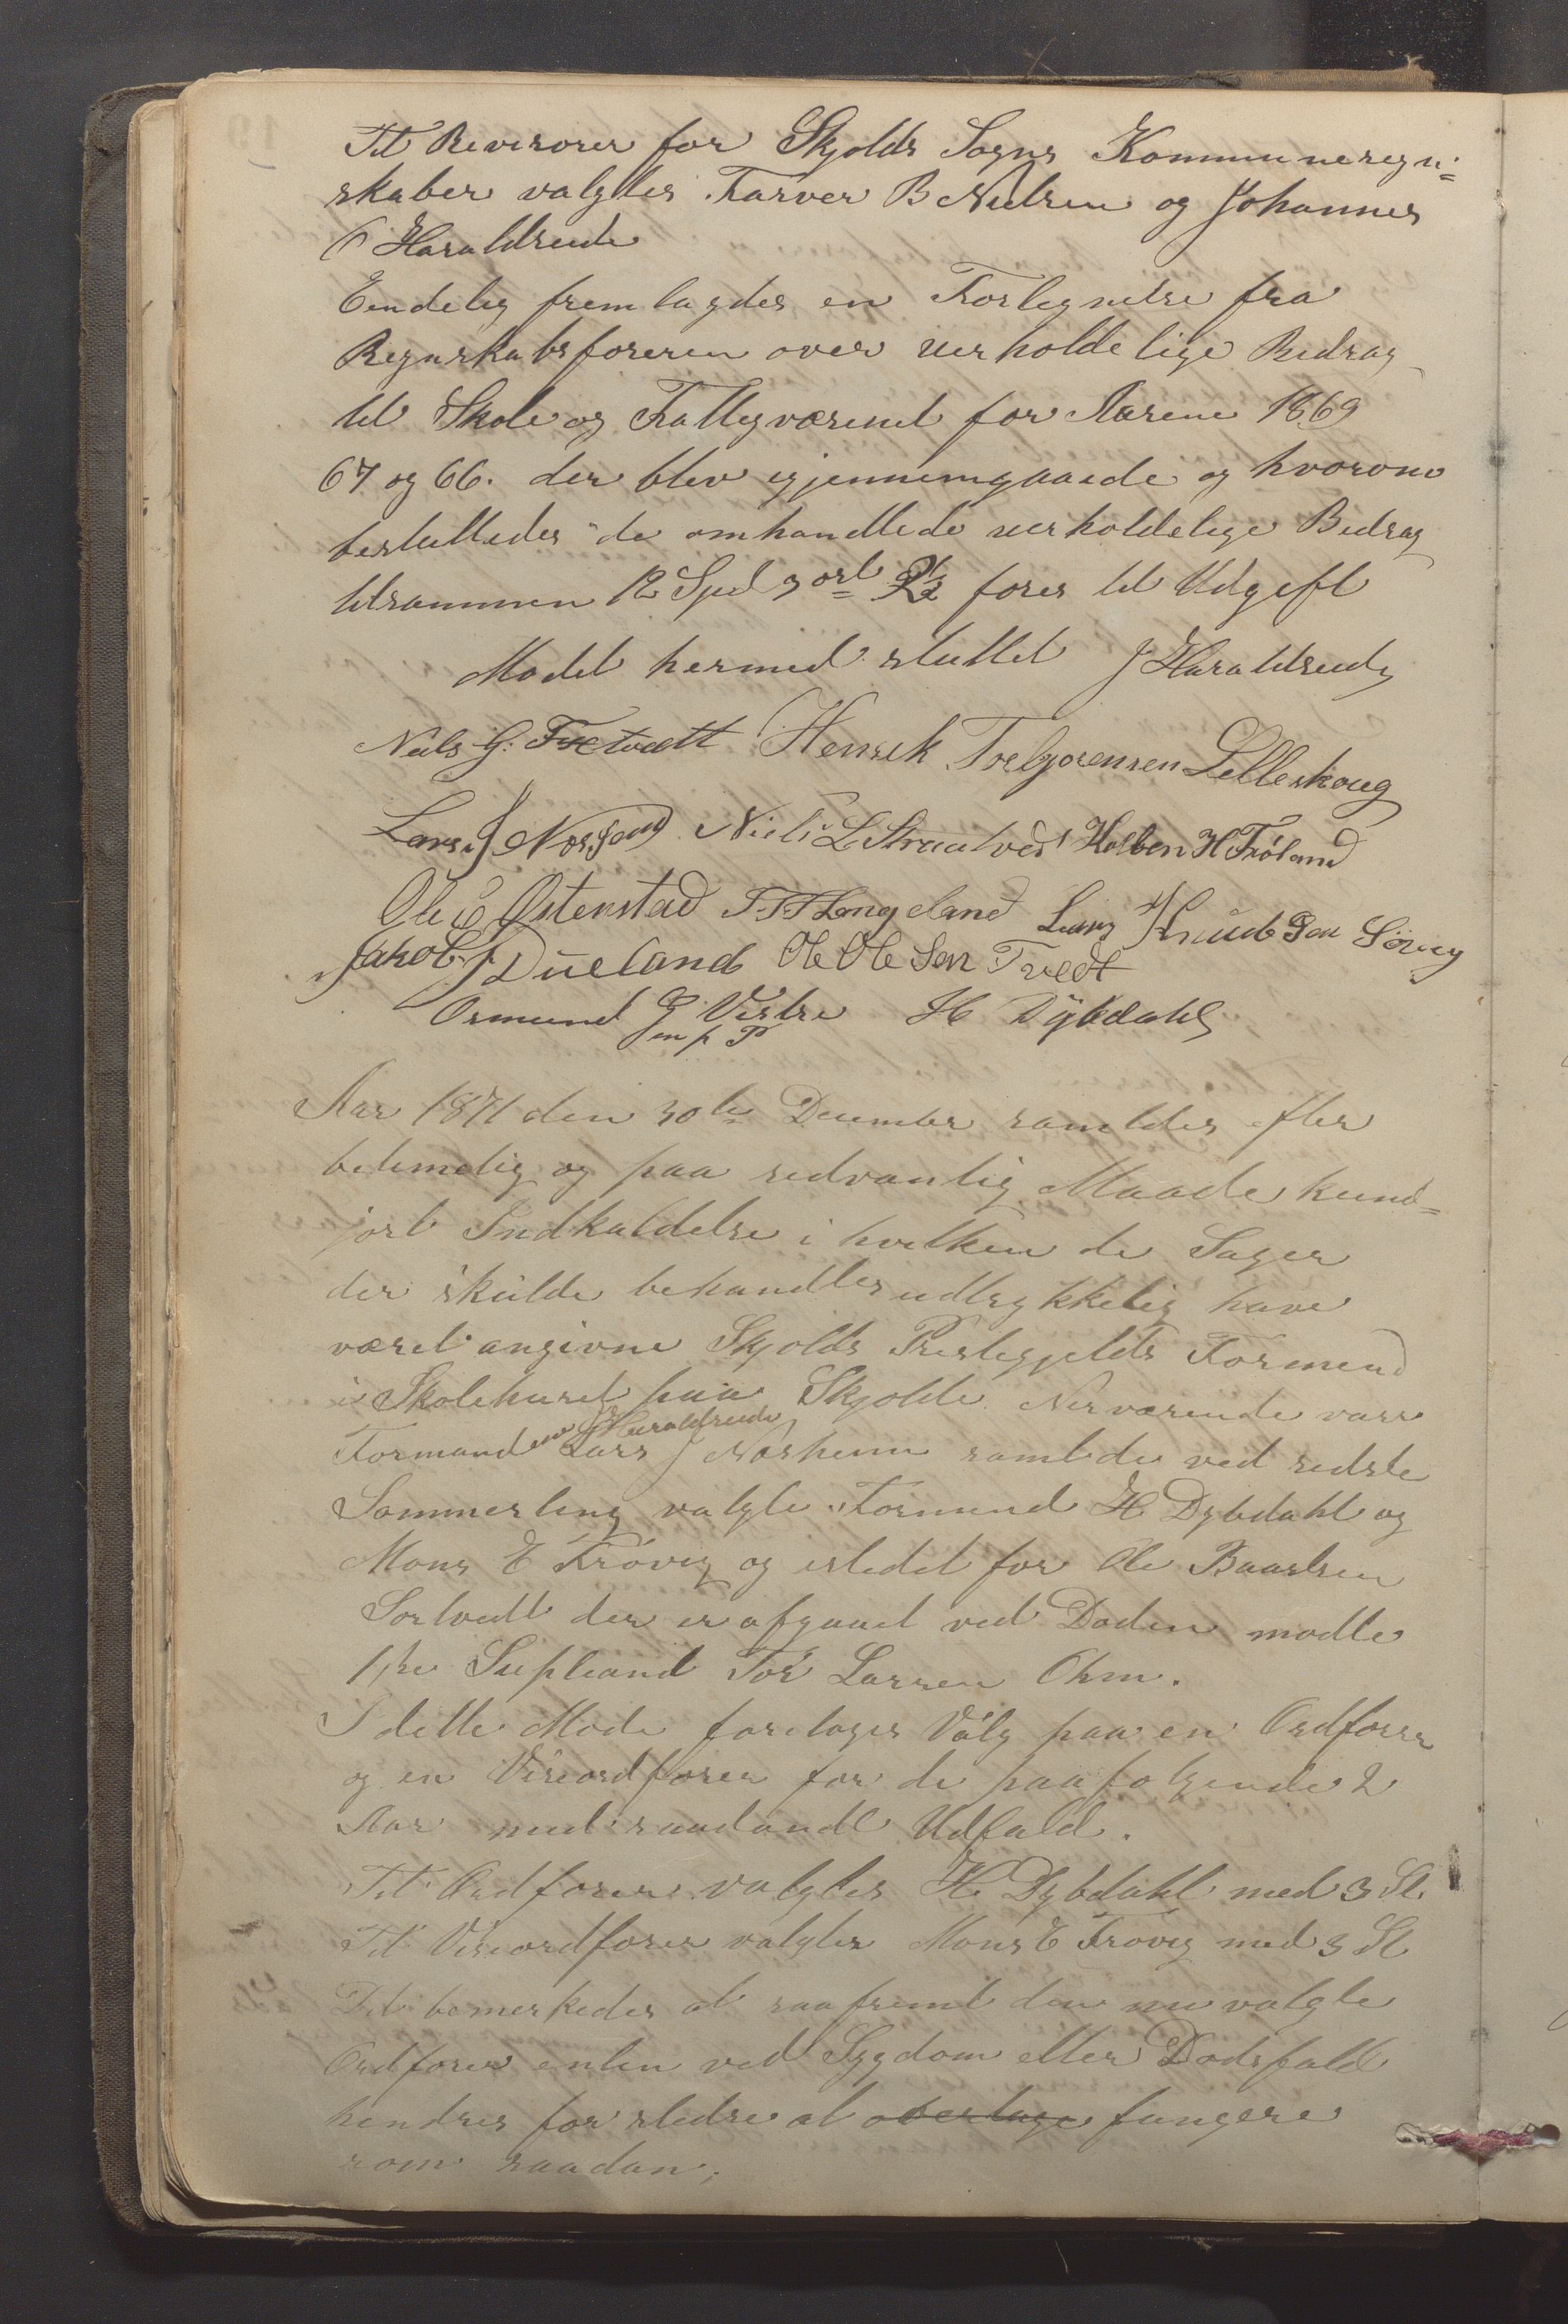 Til Revisorer for Skjolds Sogns Kommuneregn=
skaber valgtes Farver B Nielsen og Johannes
Haraldseide
Eendelig fremlagdes en Fortegnelse fra
Regnskabsføreren over uerholdelige Bidrag
til Skole og Fattigvæsenet for Aarene 1869
67 og 66. der blev igjennemgaaede og hvorom
besluttedes de omhandlede uerholdelige Bidrag
tilsammen 12 Spd 3 ort føres til Udgift
Mødet hermed sluttet J Haraldseide
Niels G. Henrik Torbjørensen Lilleskoug
Lars J Niels L Straatved Holben H Frøland
Ole Østenstad T. T. Langeland Lars Knudsen
Jakob J Dueland Ole Olesen Tvedt
Osmund G Vestre H Dybdahl
m p P
Aar 1871 den 30te December samledes efter
betimelig og paa sedvanlig Maade kund=
jort Indkaldelse i hvilken de Sager
der skulde behandles udtrykkelig have
været angivne Skjolds Prestegjelds Formend
i Skolehuset paa Skjolde. Nerværende vare
Formandene J Haraldseide Lars J Nørheim samt de ved sidste
Sommerting valgte Formend H Dybdahl og
Mons E Frøvig og istedet for Ole Baardsen
Sortvedt der er afgaaet ved Døden mødte
1ste Supleand Tor Larsen Ohm.
I dette Møde foretoges Valg paa en Ordfører
og en Viseordfører for de paafølgende 2
Aar med saadandt Udfald.
Til Ordfører valgtes H. Dybdahl med 3 St.
Til Viseordfører valgtes Mons E Frøvig med 3 St
Det bemerkedes at saafremt den nu valgte
Ordfører enten ved Sygdom eller Dødsfald
hendres for stedse at overtage fungere
som saadan;